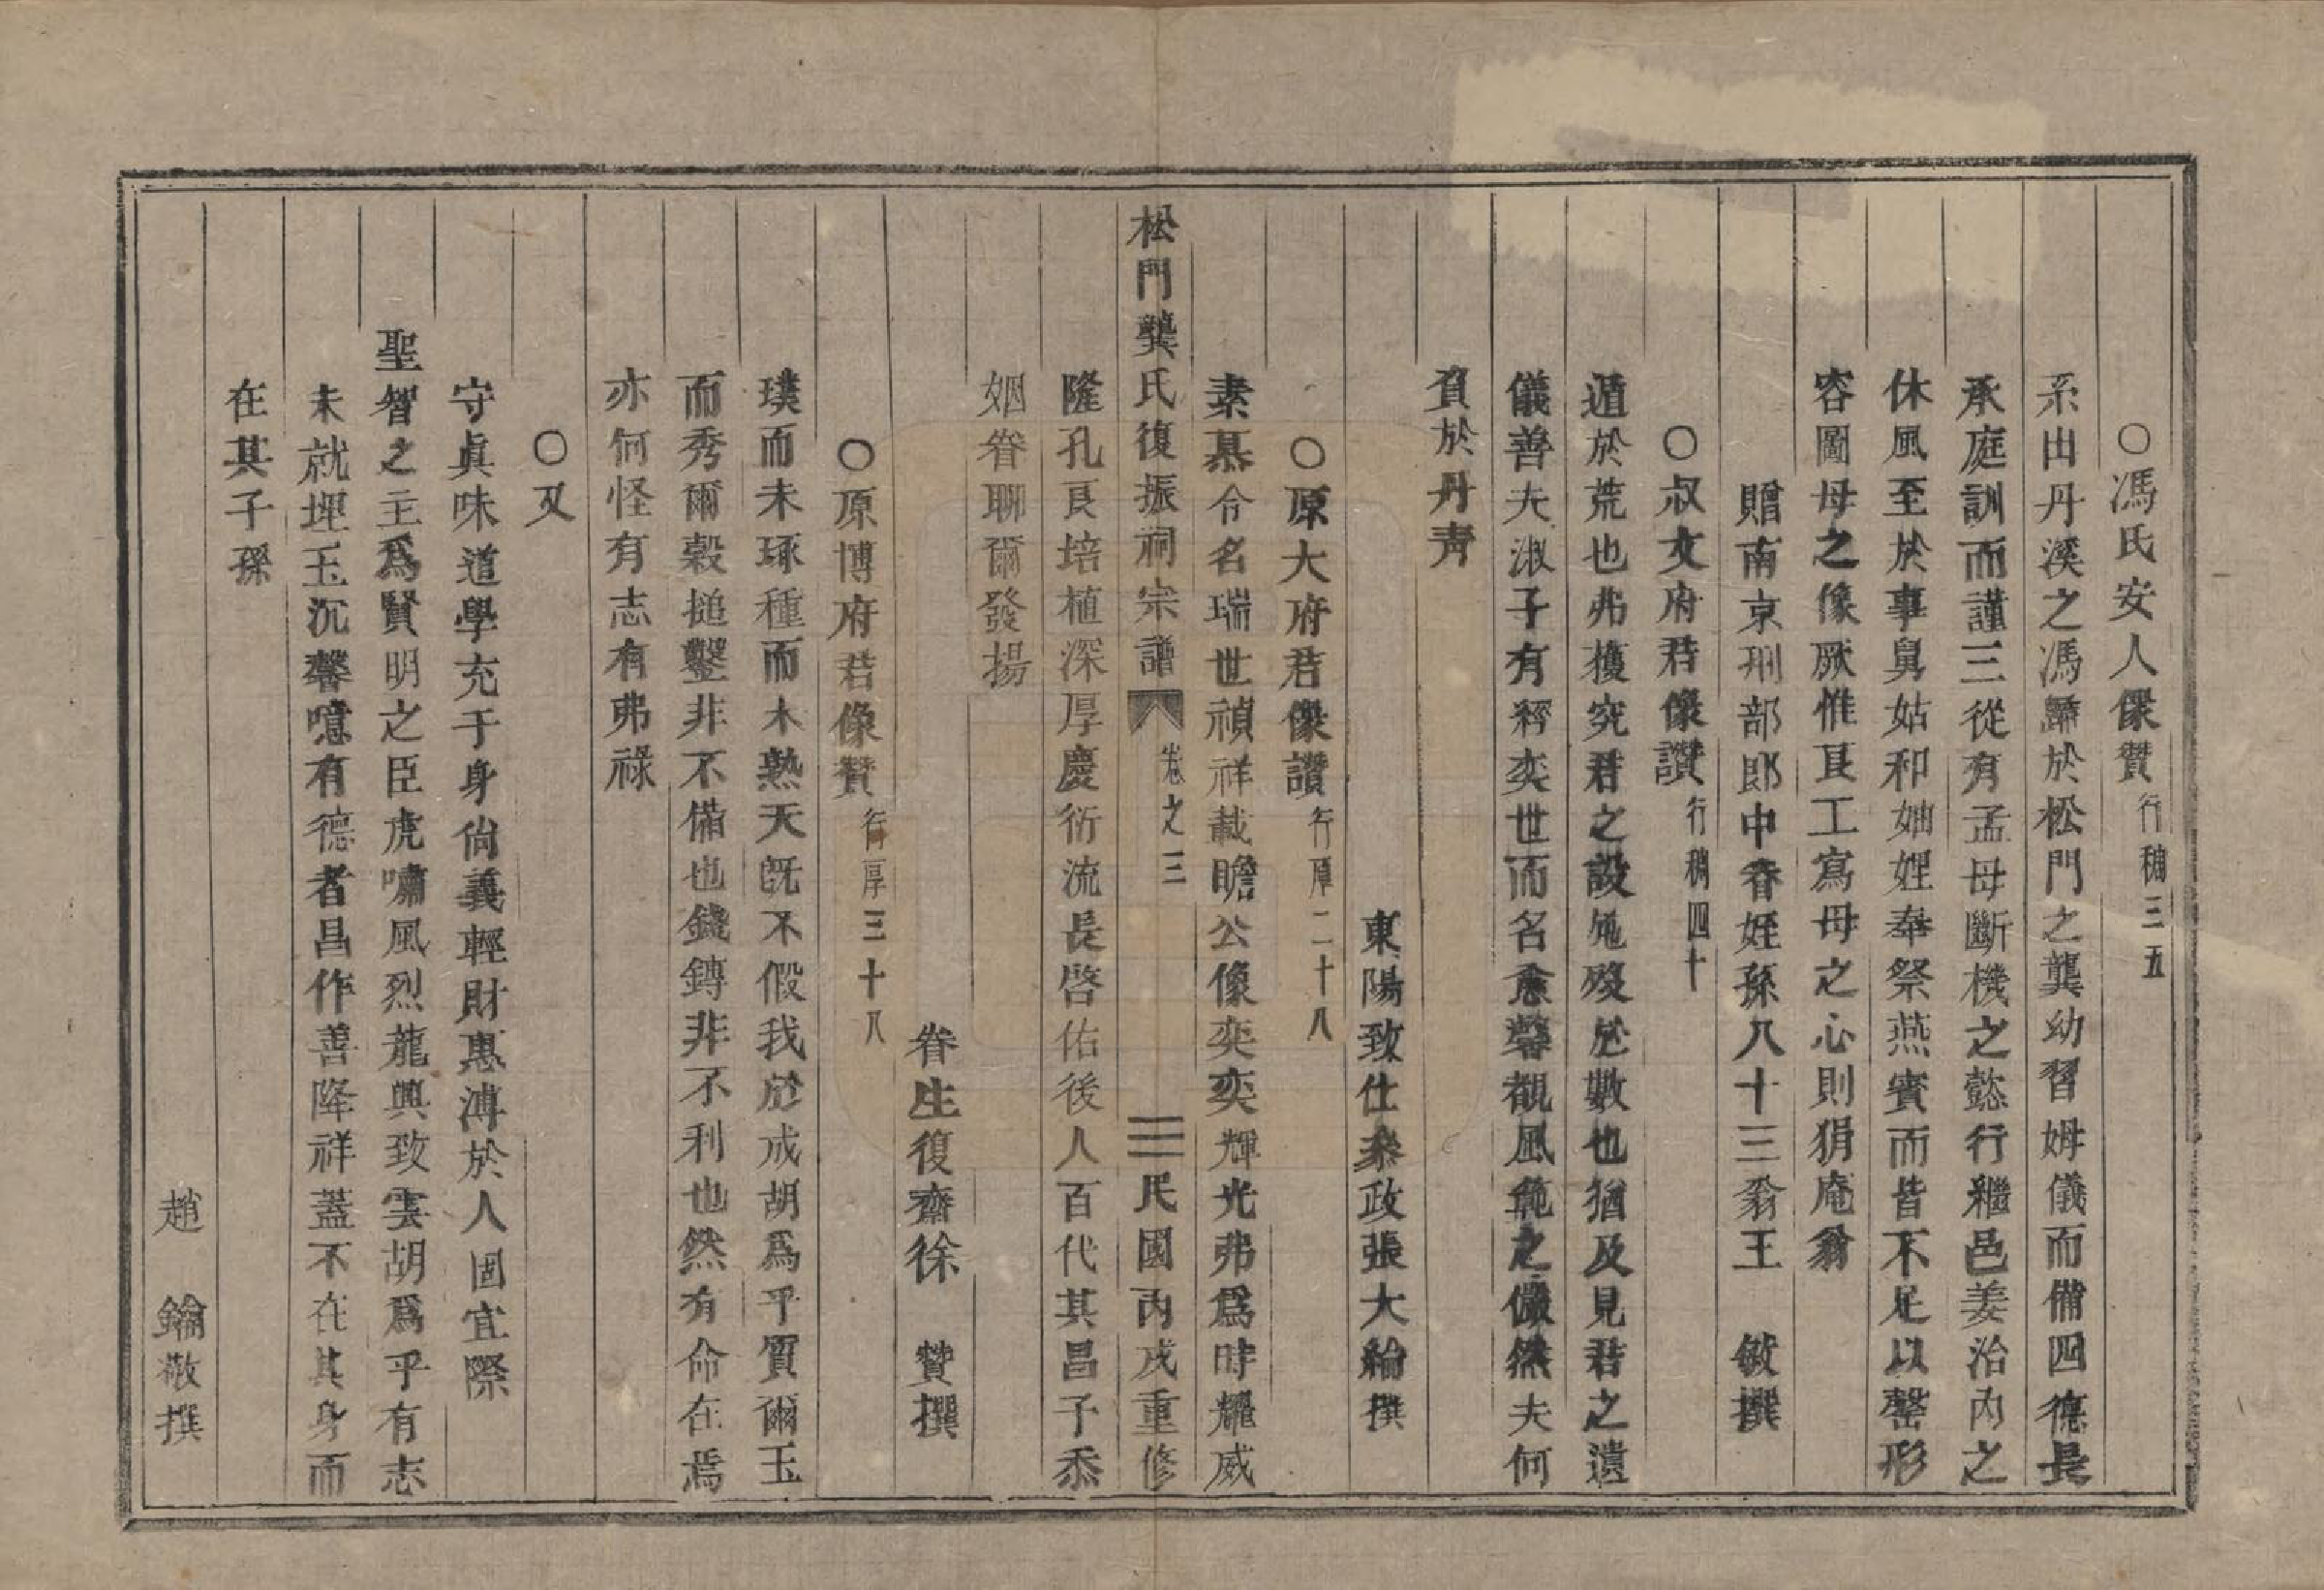 〇馮氏安人像贊行稱三五
系出丹溪之馮歸於松門之龔幼習姆儀而備四德長
承庭訓而謹三從有孟母斷機之懿行繼邑姜治內之
休風至於事舅姑和妯娌奉祭燕賓而皆不足以罄形
容圖母之像厥惟良工寫母之心則狷庵翁
贈南京刑部郎中眷姪孫八十三翁王　敏撰
〇叔文府君像讚行稱四十
遁於荒也弗獲究君之設施歿於數也猶及見君之遺
儀善夫淑子有釋奕世而名愈馨覩風範之儼然夫何
負於丹青
東陽致仕叅政張大綸撰
〇原大府君像讚行厚二十八
素慕令名瑞世禎祥載瞻公像奕奕輝光弗爲時耀威
隆孔良培植深厚慶衍流長啓佑後人百代其昌子忝
姻眷聊爾發揚
松門龔氏復振祠宗譜　卷之三　三　民國丙戌重修
眷生復齋徐　贊撰
〇原博府君像贊行厚三十八
璞而未琢種而未熟天旣不假我於成胡爲乎質爾玉
而秀爾穀搥鑿非不備也錢鎛非不利也然有命在焉
亦何怪有志有弗祿
〇又
守眞味道學充于身尙義輕財惠溥於人固宜際
聖智之主爲賢明之臣虎嘯風烈龍興致雲胡爲乎有志
未就埋玉沉馨噫有德者昌作善降祥蓋不在其身而
在其子孫
趙　錀敬撰